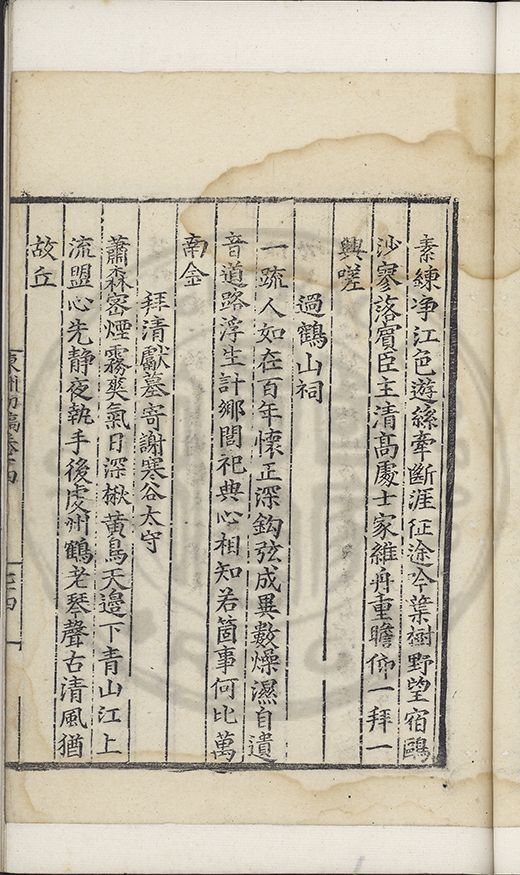 素練净江色遊絲牽斷涯征途吟葉樹野望宿鷗
沙寥落賓臣主清髙處士家維舟重瞻仰一拜一
興嗟
過鶴山祠
一疏人如在百年懷正深鈎弦成異數燥濕自遺
音道路浮生計鄉閭祀典心相知若箇事何比萬
南金
拜清獻墓寄謝寒谷太守
蕭森宻煙霧爽氣日深楸黄鳥天邊下青山江上
流盟心先静夜執手後虔州鶴老琴聲古清風猶
故丘